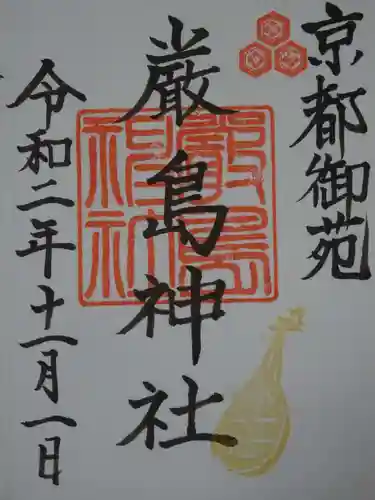 京都御苑
厳島神社
嚴島神社
令和二年十一月一日